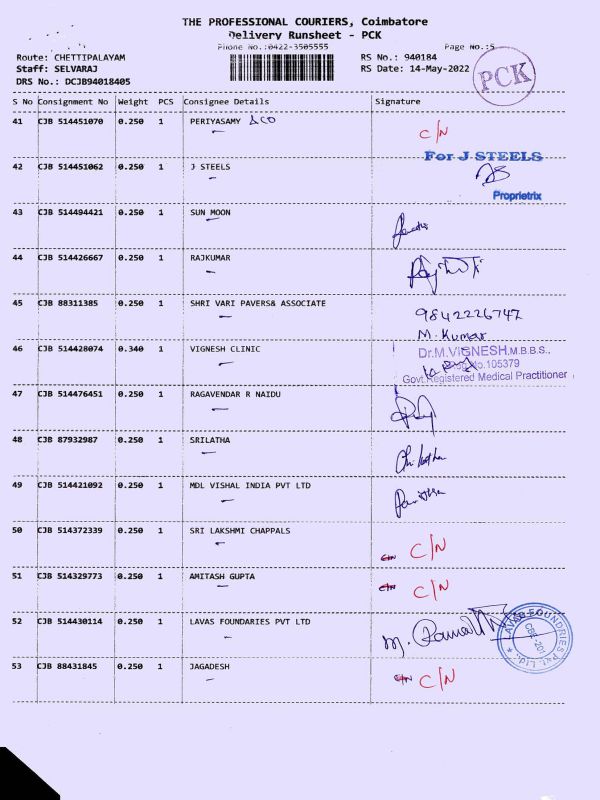 THE PROFESSIONAL COURIERS, Coimbatore
Delivery Runsheet - PCK
Phone No.:0422-3505555 Page No.:5
Route: CHETTIPALAYAM RS No.: 940184
Staff: SELVARAJ RS Date: 14-May-2022
DRS No.: DCJB94018405
PCK
S No Consignment No Weight PCS Consignee Details Signature
41 CJB 514451070 0.250 1 PERIYASAMY C/N
42 CJB 514451062 0.250 1 J STEELS For J STEELS
Proprietrix
43 CJB 514494421 0.250 1 SUN MOON
44 CJB 514426667 0.250 1 RAJKUMAR
45 CJB 88311385 0.250 1 SHRI VARI PAVERS& ASSOCIATE 9842226747
M. Kumar
46 CJB 514428074 0.340 1 VIGNESH CLINIC Dr.M.VIGNESH,M.B.B.S.,
No.105379
Govt.Registered Medical Practitioner
47 CJB 514476451 0.250 1 RAGAVENDAR R NAIDU
48 CJB 87932987 0.250 1 SRILATHA
49 CJB 514421092 0.250 1 MDL VISHAL INDIA PVT LTD
50 CJB 514372339 0.250 1 SRI LAKSHMI CHAPPALS C/N C/N
51 CJB 514329773 0.250 1 AMITASH GUPTA C/N C/N
52 CJB 514430114 0.250 1 LAVAS FOUNDARIES PVT LTD M.
53 CJB 88431845 0.250 1 JAGADESH C/N C/N